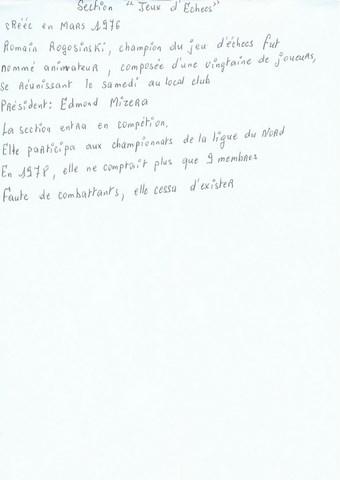 Section "Jeux d'Echecs"
CRÉÉE en MARS 1976
Romain Rogosinski, champion du jeu d'échecs fut
nommé animateur, composée d'une vingtaine de joueurs,
se réunissant le samedi au local club
Président: Edmond Mizera
La section entra en compétion,
Elle participa aux championnats de la ligue du NORD
En 1978, elle ne comptait plus que 9 membres
Faute de combattants, elle cessa d'exister